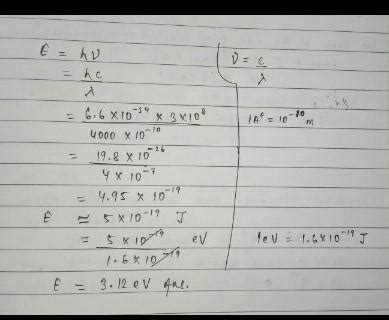 E = hν
= hc / λ
= 6.6 × 10⁻³⁴ × 3 × 10⁸ / 4000 × 10⁻¹⁰
= 19.8 × 10⁻²⁶ / 4 × 10⁻⁷
= 4.95 × 10⁻¹⁹
E ≈ 5 × 10⁻¹⁹ J
= 5 × 10⁻¹⁹ / 1.6 × 10⁻¹⁹ eV
E = 3.12 eV Ans.
ν = c / λ
1A° = 10⁻¹⁰ m
1eV = 1.6 × 10⁻¹⁹ J